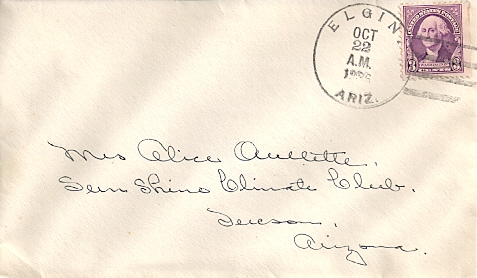 ELGIN
OCT
22
A.M.
ARIZ.
UNITED STATES POSTAGE
3 WASHINGTON 3
Mrs Alice Aullette,
Sun Shine Climate Club.
Tucson,
Arizona.